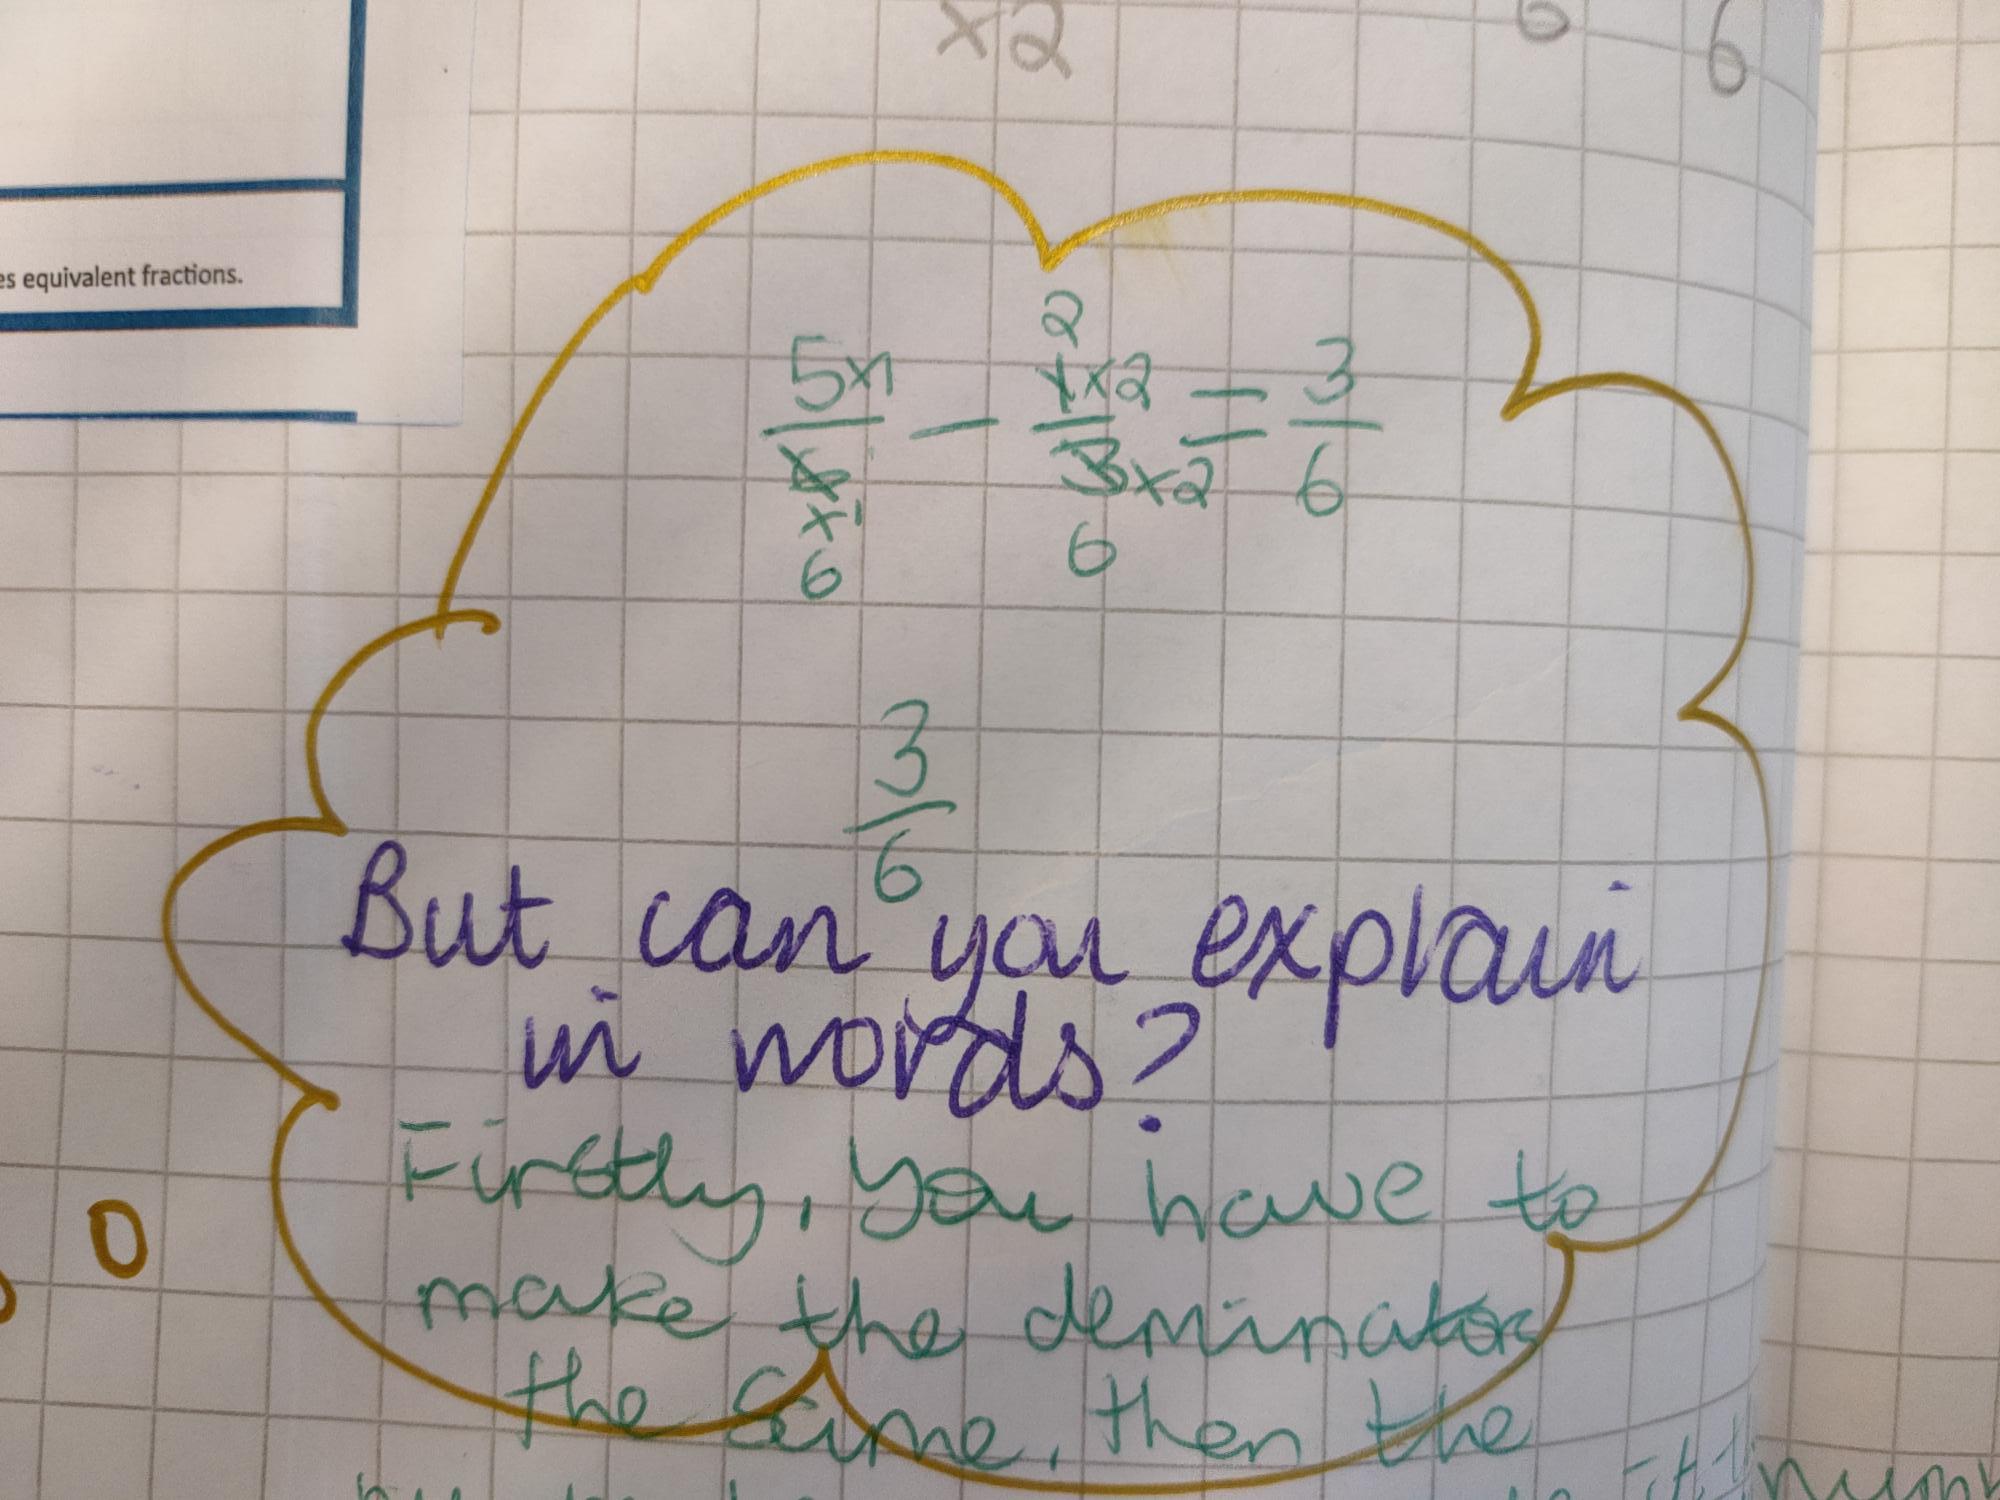 ×2
6 6
es equivalent fractions.
2
5×1 — 1×2 = 3
6 3×2 6
×1
6 6
3
6
But can you explain
in words?
Firstly, you have to
make the deminators
the same, then the
0